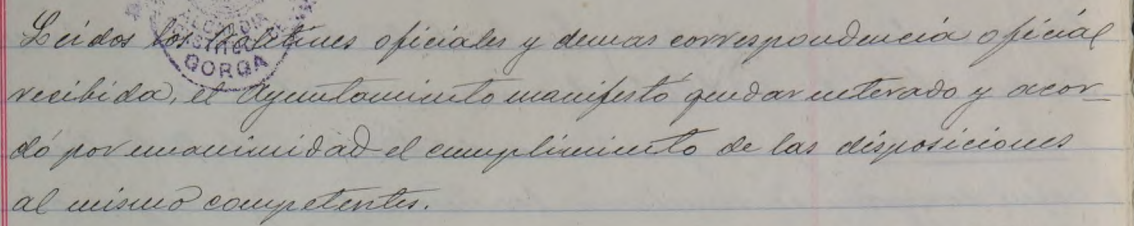 Leidos los Boletines oficiales y demas correspondencia oficial
recibida, el Ayuntamiento manifestó quedar enterado y acor-
dó por unanimidad el cumplimiento de las disposiciones
al mismo competentes.
ALCALDIA
GORGA